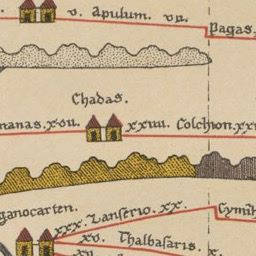 v. apulum. vii.
pagas.
Chadas.
nanas. xvii. xxiiii. Colchion. xx
ganocarten.
xxx. Lanserio. xx. Cymih
xv. Thalbasaris. x.
xv.